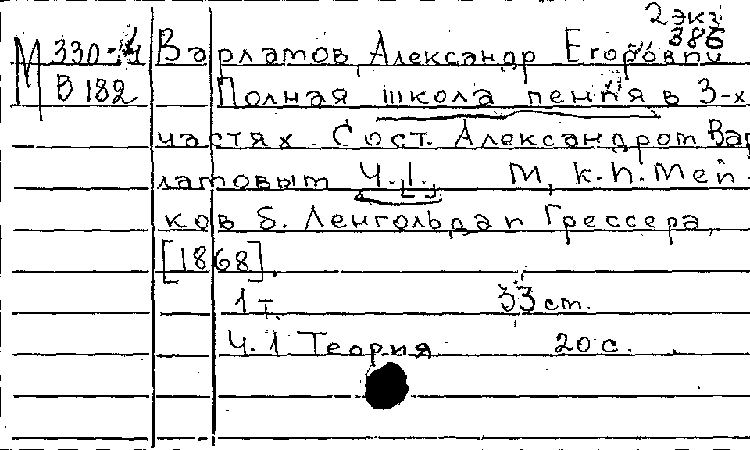 2 экз
386
М 330-4 Варламов, Александр Егорович
В 182 Полная школа пения в 3-х
частях Сост. Александром Вар
ламовым Ч. I. М, К.И. Мей-
ков б. Ленгольда и Грессера,
[1868].
1 т. 33 ст.
Ч. 1 Теория 20 с.